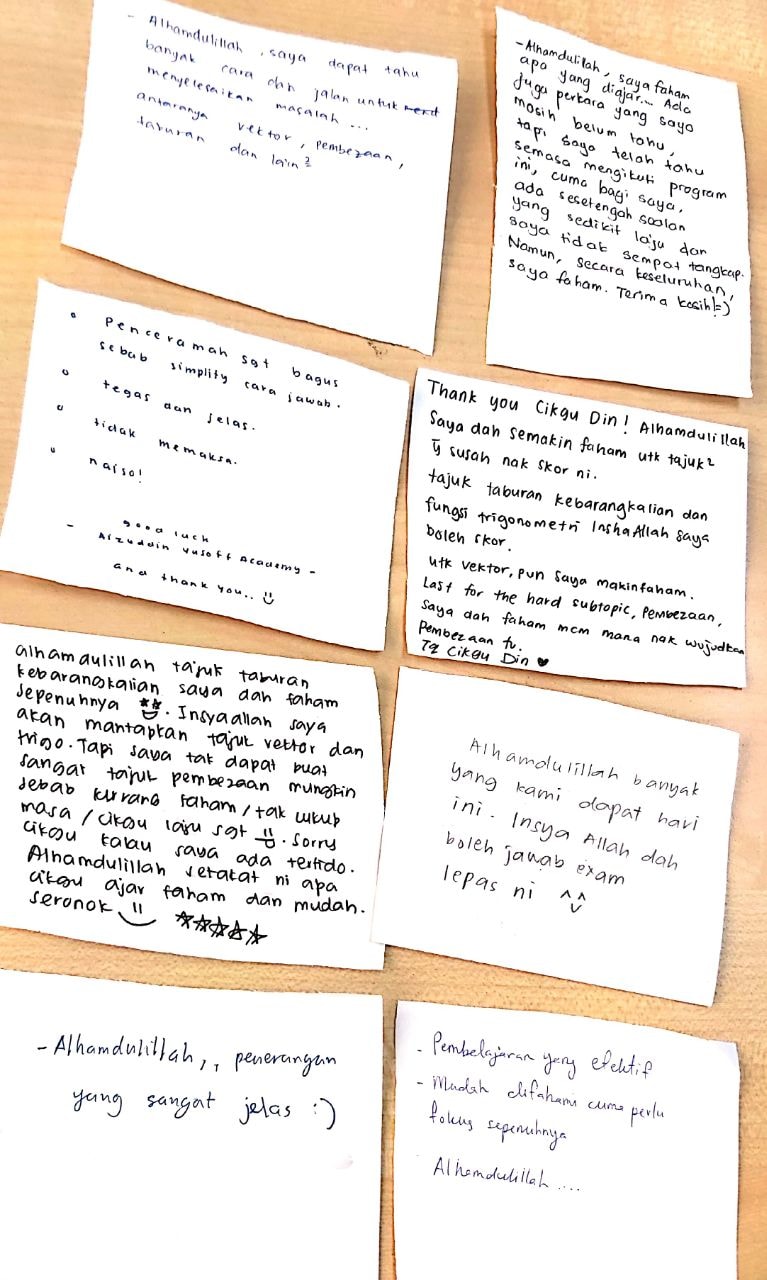 - Alhamdulillah, saya dapat tahu
banyak cara dan jalan untuk
menyelesaikan masalah ...
antaranya vektor, pembezaan,
taburan dan lain2
- Alhamdulilah, saya faham
apa yang diajar... Ada
juga perkara yang saya
masih belum tahu,
tapi saya telah tahu
semasa mengikuti program
ini, cuma bagi saya,
ada sesetengah soalan
yang sedikit laju dan
saya tidak sempat tangkap.
Namun, secara keseluruhan,
saya faham. Terima kasih!=)
• Penceramah sgt bagus
sebab simplify cara jawab.
• tegas dan jelas.
• tidak memaksa.
• naiso!
good luck
- Aizuddin Yusoff Academy -
and thank you..
Thank you Cikgu Din! Alhamdulillah
Saya dah semakin faham utk tajuk2
yg susah nak skor ni.
tajuk taburan kebarangkalian dan
fungsi trigonometri InshaAllah saya
boleh skor.
utk vektor, pun saya makin faham.
Last for the hard subtopic, Pembezaan,
saya dah faham mcm mana nak wujudkan
Pembezaan tu.
Tq Cikgu Din ♥
alhamdulillah tajuk taburan
kebarangkalian saya dah faham
sepenuhnya. Insyaallah saya
akan mantapkan tajuk vektor dan
trigo. Tapi saya tak dapat buat
sangat tajuk pembezaan mungkin
sebab kurang faham/tak cukup
masa/cikgu laju sgt. Sorry
cikgu kalau saya ada tertido.
Alhamdulillah setakat ni apa
cikgu ajar faham dan mudah.
seronok ☆☆☆☆☆
Alhamdulillah banyak
yang kami dapat hari
ini. Insya Allah dah
boleh jawab exam
lepas ni ^^
- Alhamdulillah,, penerangan
yang sangat jelas :)
- Pembelajaran yang efektif
- Mudah difahami cuma perlu
fokus sepenuhnya
Alhamdulillah ....